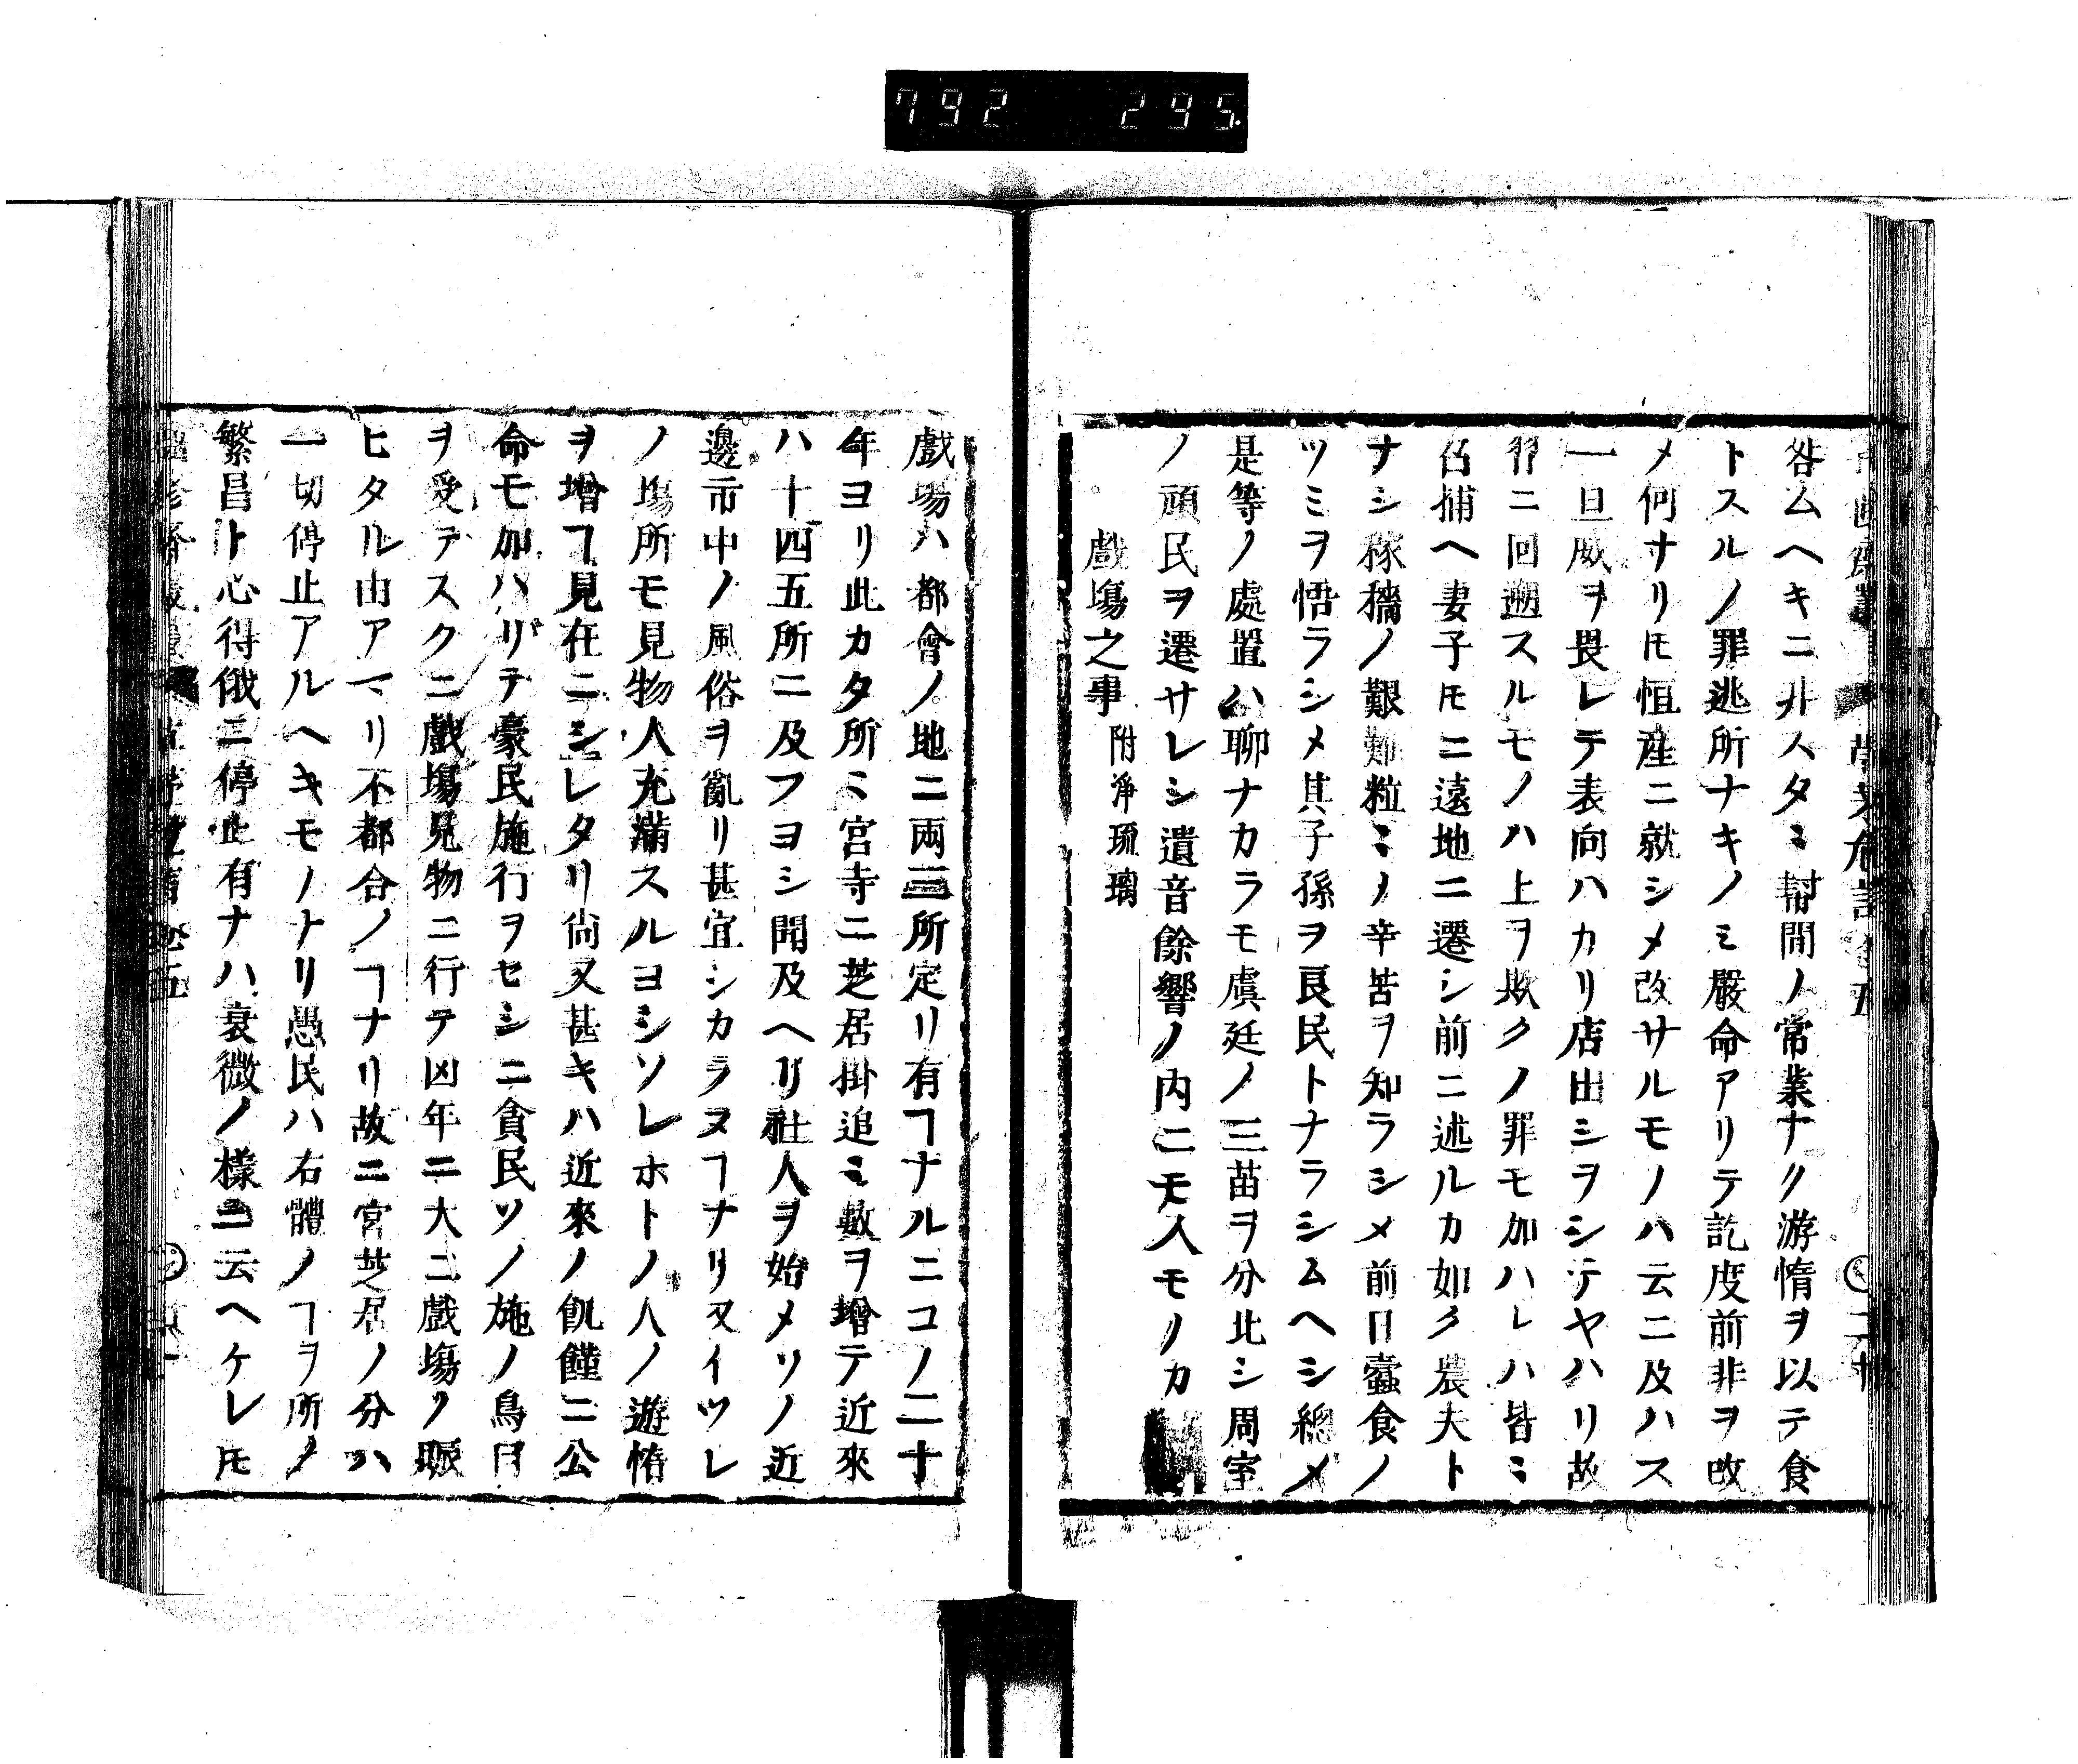 792 295
咎ムヘキニ非スタヽ幇閒ノ常業ナク游惰ヲ以テ食
トスルノ罪逃所ナキノミ嚴命アリテ訖度前非ヲ改
メ何ナリ𪜈恒産ニ就シメ改サルモノハ云ニ及ハス
一旦威ヲ畏レテ表向ハカリ店出シヲシテヤハリ故
習ニ回遡スルモノハ上ヲ欺クノ罪モ加ハレハ皆ミ
召捕ヘ妻子𪜈ニ遠地ニ遷シ前ニ述ルカ如ク農夫ト
ナシ稼穡ノ艱難粒ミノ辛苦ヲ知ラシメ前日蠧食ノ
ツミヲ悟ラシメ其子孫ヲ良民トナラシムヘシ總メ
是等ノ處置ハ聊ナカラモ虞廷ノ三苗ヲ分北シ周室
ノ頑民ヲ遷サレシ遺音餘響ノ内ニモ入モノカ
戲塲之事 附淨琉璃
戲塲ハ都會ノ地ニ兩三所定リ有ヿナルニコノ二十
年ヨリ此カタ所ミ宮寺ニ芝居掛追ミ數ヲ增テ近來
ハ十四五所ニ及フヨシ聞及ヘリ社人ヲ始メソノ近
邊市中ノ風俗ヲ亂リ甚宜シカラヌヿナリ又イツレ
ノ塲所モ見物人充滿スルヨシソレホトノ人ノ遊惰
ヲ增ヿ見在ニシレタリ尙又甚キハ近來ノ飢饉ニ公
命モ加ハリテ豪民施行ヲセシニ貪民ソノ施ノ鳥目
ヲ受テスクニ戲塲見物ニ行テ凶年ニ大ニ戲塲ノ賑
ヒタル由アマリ不都合ノヿナリ故ニ宮芝居ノ分ハ
一切停止アルヘキモノナリ愚民ハ右體ノヿヲ所ノ
繁昌ト心得俄ニ停止有ナハ衰微ノ樣ニ云ヘケレ𪜈